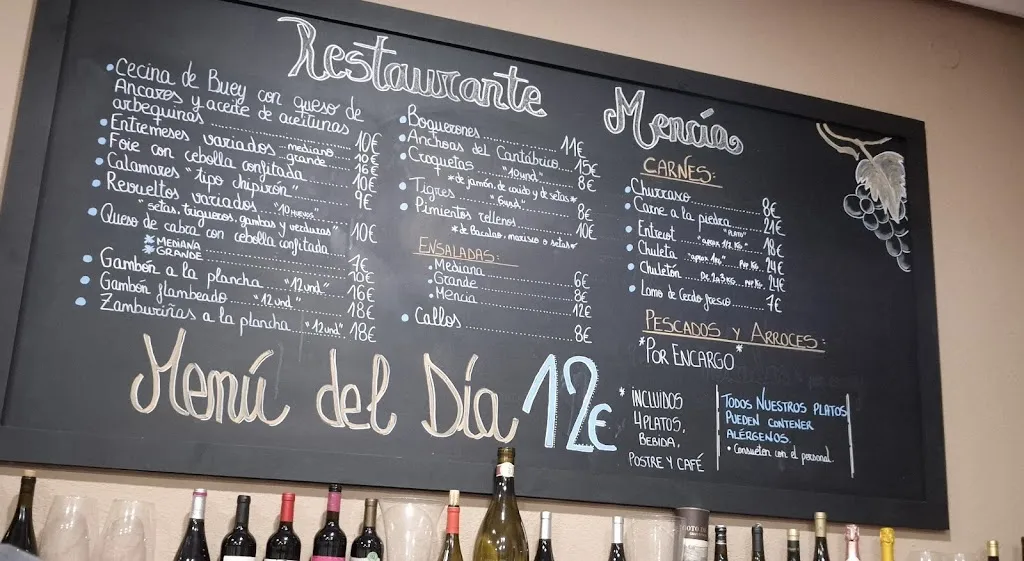 Restaurante Mencía
•Cecina de Buey con queso de
Ancares y aceite de aceitunas
arbequinas 10€
•Entremeses variados mediano 10€
grande 16€
•Foie con cebolla confitada 10€
•Calamares "tipo chipirón" 9€
•Revueltos variados "10 HUEVOS" 10€
"setas, trigueros, gambas y verduras"
•Queso de cabra con cebolla confitada
*MEDIANA 7€
*GRANDE 10€
•Gambón a la plancha "12 und" 16€
•Gambón flambeado "12 und" 18€
•Zamburiñas a la plancha "12 und" 18€
•Boquerones 11€
•Anchoas del Cantábrico 15€
•Croquetas "10 und" 8€
*de jamón, de cocido y de setas*
•Tigres "6 und" 8€
•Pimientos rellenos 10€
*de Bacalao, marisco o setas*
ENSALADAS:
•Mediana 6€
•Grande 8€
•Mencía 12€
•Callos 8€
CARNES:
•Churrasco 8€
•Carne a la piedra 21€
•Entrecot "PLATO" 18€
•Chuleta "aprox 1/2 KG" 24€
•Chuletón "aprox 1KG" PVP KG 24€
De 2a3 KG PVP KG
•Lomo de Cerdo fresco 7€
PESCADOS Y ARROCES:
*POR ENCARGO*
Menú del Día 12€
*INCLUIDOS
4 PLATOS,
BEBIDA,
POSTRE Y CAFÉ
TODOS NUESTROS PLATOS
PUEDEN CONTENER
ALÉRGENOS.
•Consulten con el personal.